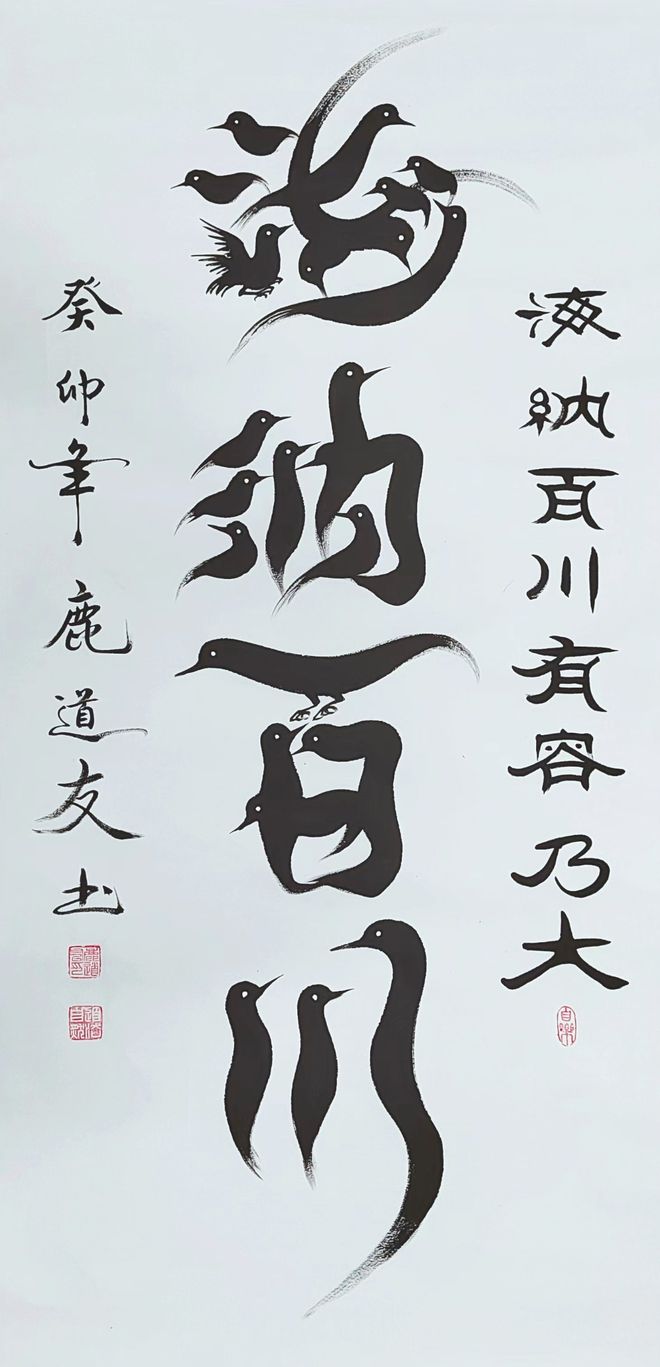 海納百川有容乃大
海纳百川
癸卯年鹿道友书